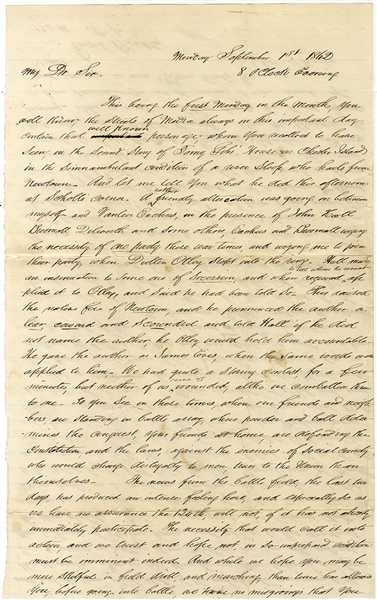 Monday September 1st 1862
8 OClock Evening
My Dr. Sir.
This being the first Monday in the month, You
well know, the streets of Media always on this important day
contain that well known personage whom you wanted to have
seen in the second Story of Tomy Johs' House on Chester Island
in the Somnambulant condition of a
Newtown. And let me tell You what he did this afternoon
at corner. A friendly altercation was going on between
myself and Cochran, in the presence of John Hall
Dilworth and some others, Cochran and urging
the necessity of one party these war times and urging me to join
their party, when Doctor Ottey stept into the ring. Hall made
an insinuation to Some one of Secession, and when required, ap-
plied it to Ottey, and said he had been told so. This raised
the native fire of Newtown and he pronounced the author a
liar, coward and Scoundrel and told Hall if he did
not name the author, he Ottey would hold him accountable
He gave the author as James when the same words was
applied to him. We had quite a stormy contest for a few
minutes, but neither of us were wounded, altho we combatted two
to one. So you See in these times when our friends and neigh-
bors are standing in battle array, where powder and ball deter-
mines the conquest, your friends at home are defending the
Constitution and the laws, against the enemies of Social comity
who would charge disloyalty to men truer to the Union than
themselves. The news from the battle field, the last two
days has produced an intense feeling here, and especially so as
we have no assurance the 124th, will not, if it has not already
immediately participate. The necessity that would call it into
action and we trust and hope not, in so unprepared condition
must be imminent indeed. And while we hope you may be
more skilful in field drill and marching, than time has allowed
You before going into battle, we have no misgivings that You